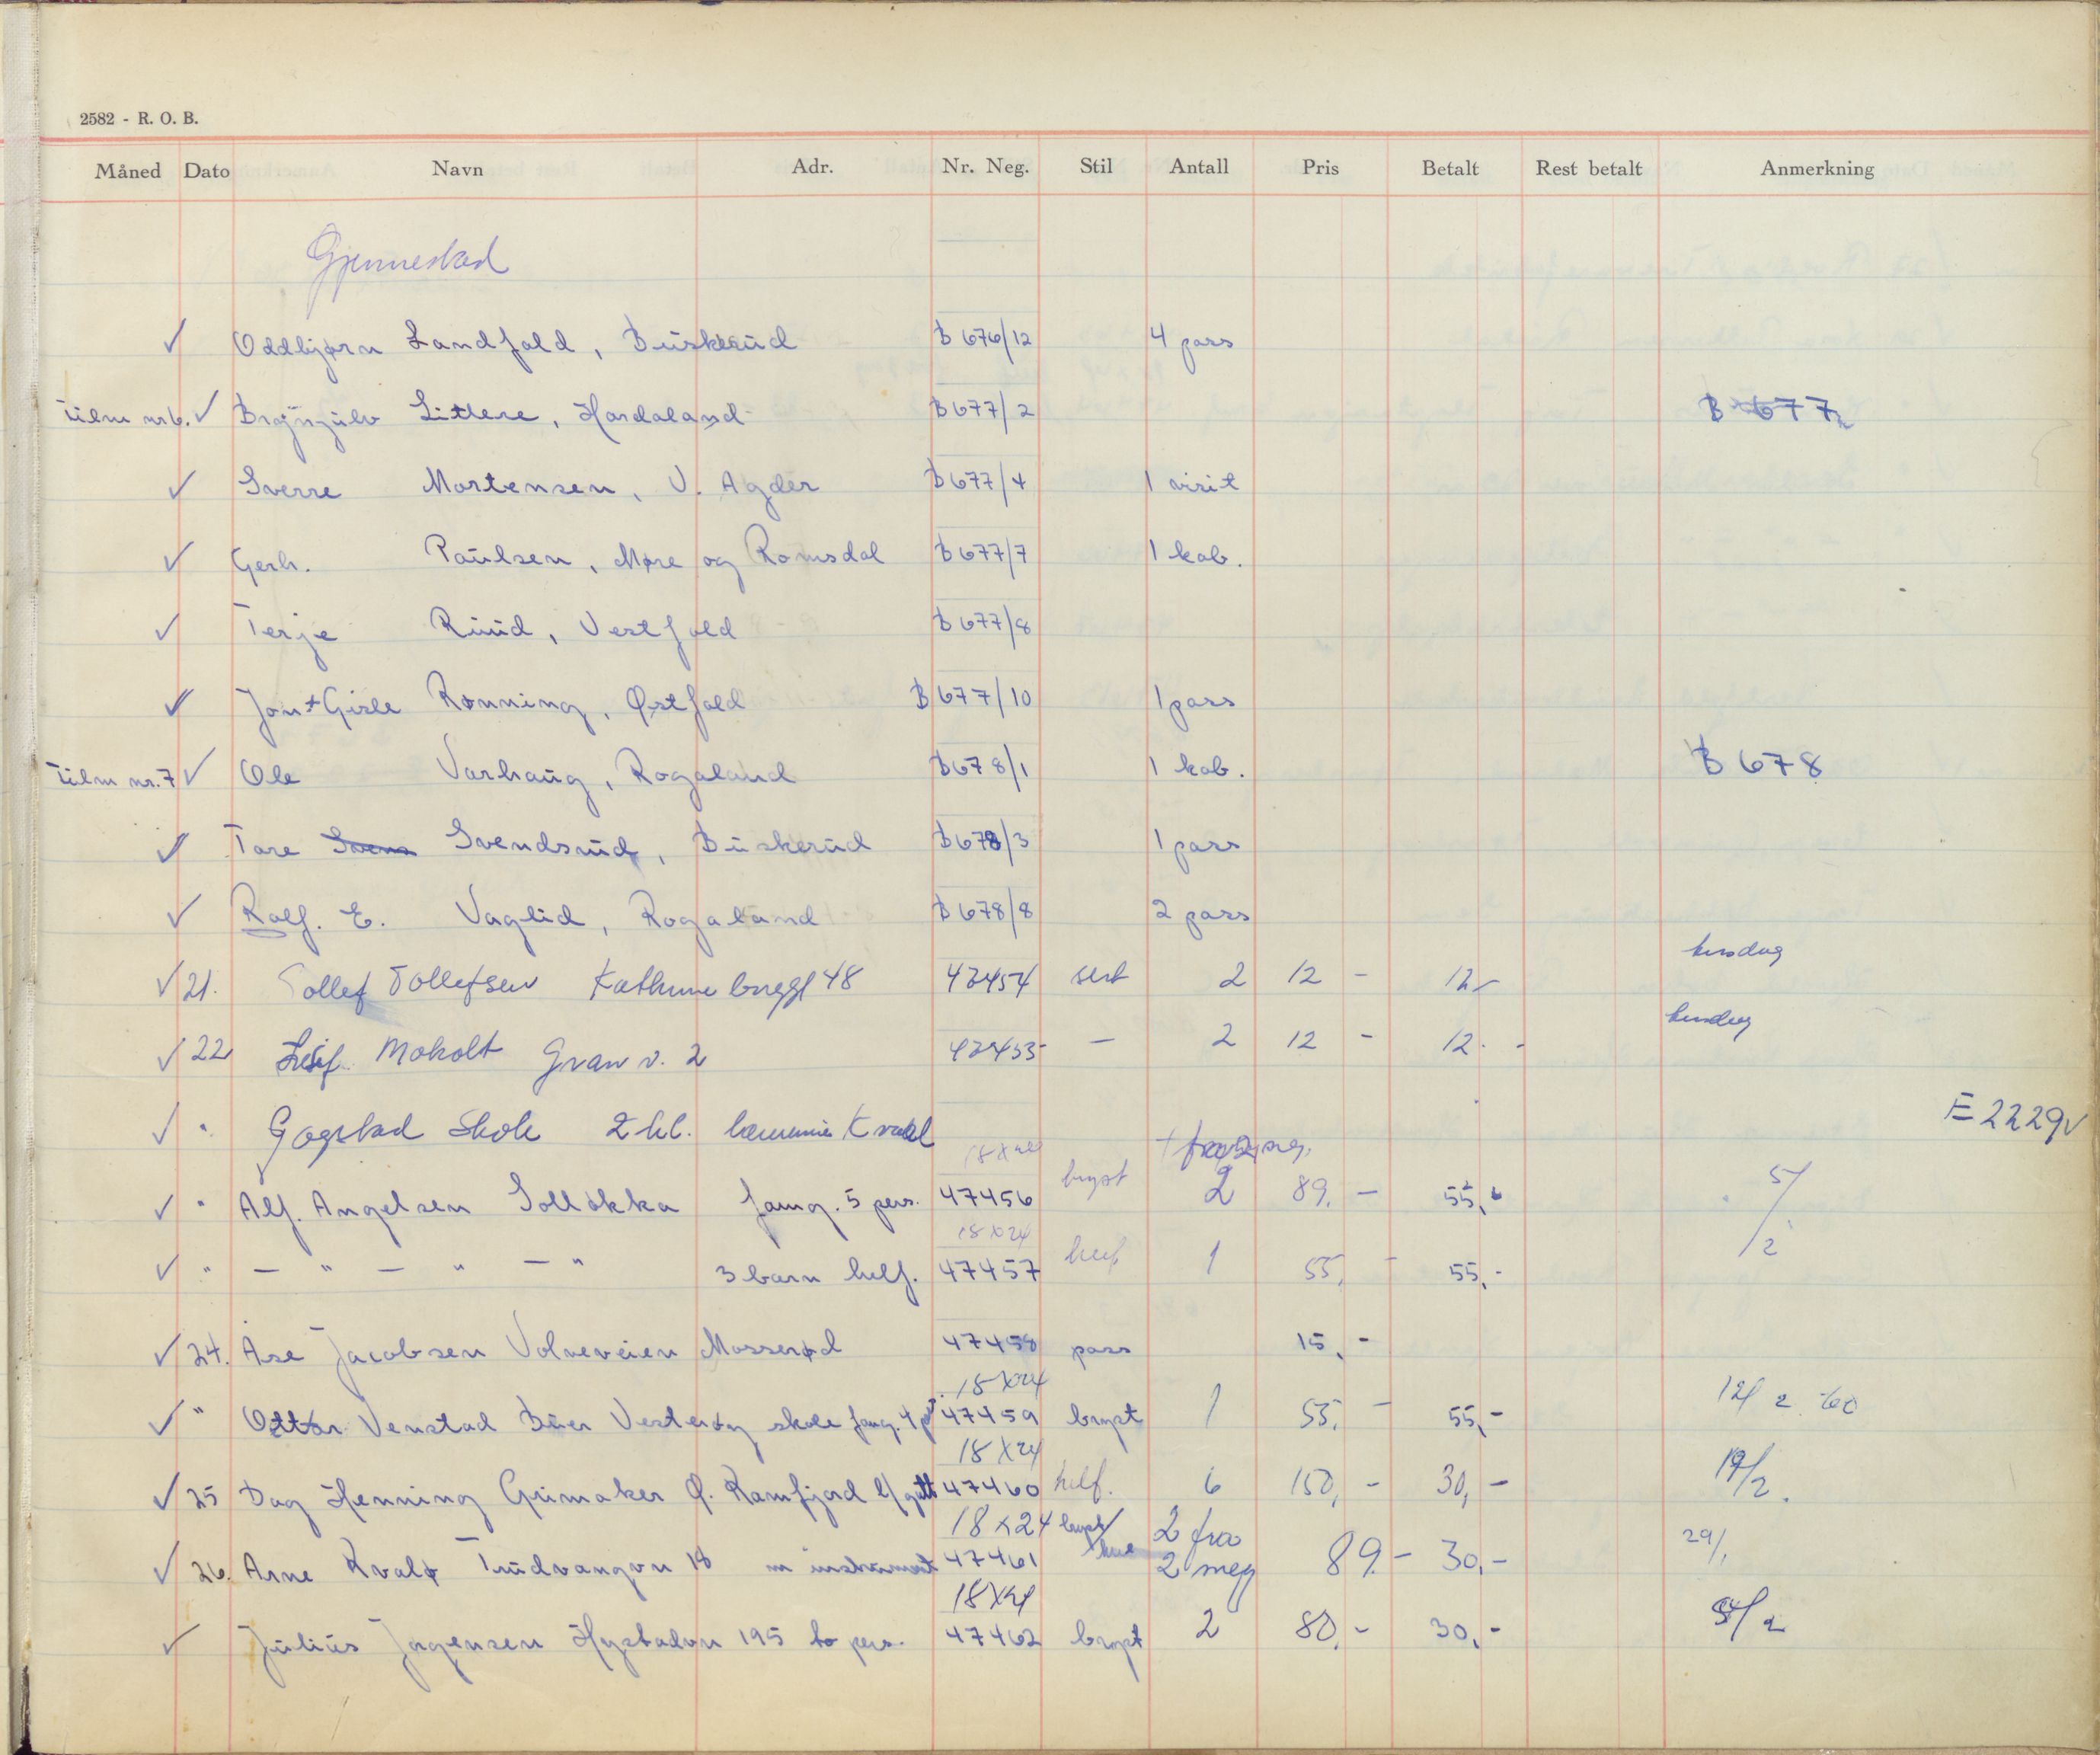 2582 - R. O. B.
Måned Dato Navn Adr. Nr. Neg. Stil Antall Pris Betalt Rest betalt Anmerkning
Gjennestad
✓ Oddbjørn Landfald, Buskerud B 676/12 4 pass
Film nr 6. ✓ Brynjulv Litlere, Hordaland B 677/2 B 677
✓ Sverre Mortensen, V. Agder B 677/4 1 visit
✓ Gerh. Paulsen, Møre og Romsdal B 677/7 1 kab.
✓ Terje Ruud, Vestfold B 677/8
✓ Jon + Gisle Rønning, Østfold B 677/10 1 pass
Film nr. 7 ✓ Ole Varhaug, Rogaland B 678/1 1 kab. B 678
✓ Tore Svens Svendsrud, Buskerud B 678/3 1 pass
✓ Ralf. E. Vaglid, Rogaland B 678/8 2 pass
✓ 21. Tollef Tollefsen 48 47454 sert 2 12 - 12,-
✓ 22 Mokolt Gran v. 2 47455 — 2 12 - 12. -
✓ " Gogstad Skole 2 kl. E 2229 ✓
18 x 24
✓ " Alf. Angelsen Solløkka fam. 5 pers. 47456 bryst 2 89. - 55,- 5/2
18 x 24
✓ " — " — " — " 3 barn helf. 47457 helf 1 55, - 55,-
✓ 24. Åse Jacobsen Volveveien Mosserød 47458 pass 15,-
18 x 24
✓ " Ottar Venstad Buer Vesterøy skole fam. 4 47459 bryst 1 55. - 55,- 12/2 60
18 x 24
✓ 25 Dag Henning Grimaker Ø. Ramfjord l/gutt 47460 helf. 6 150, - 30,- 19/2.
18 x 24 bryst/ 2 fra
✓ 26. Arne Kvalø Trudvangvn 18 m instrument 47461 kne 2 neg 89.- 30,- 29/1
18 x 24
✓ Julius Jørgensen Hystadvn 195 to pers. 47462 bryst 2 80.- 30,- /2